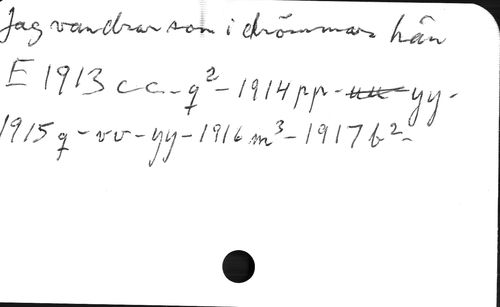 Jag vandrar som i drömmar hän
E 1913 cc - q² - 1914 pp - uu - yy -
1915 q - vv - yy - 1916 m³ - 1917 b² -